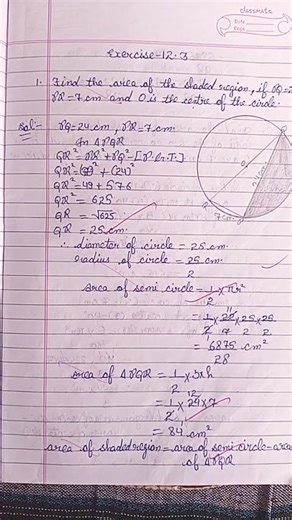 classmate
Date
Page
Exercise-12.3
1. Find the area of the shaded region, if PQ=2
PR=7 cm and O is the centre of the circle.
Sol:- PQ=24 cm, PR=7cm.
In ΔPQR
QR²=PR²+PQ²-[P.G.T.]
QR²=(7)²+(24)²
QR²=49+576
QR²= 625
QR = √625
QR = 25cm.
∴ diameter of circle = 25cm.
radius of circle = 25cm.
2
area of semi circle = 1/2 × πr²
= 1/2 × 22/7 × 25/2 × 25/2
= 6875 cm²
28
area of ΔPQR = 1/2 × b×h
= 1/2 × 24 × 7
= 84 cm²
area of shaded region = area of semi circle - area
of ΔPQR